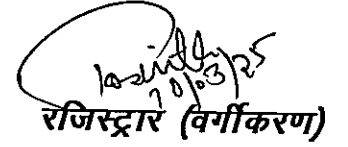 10/03/25
रजिस्ट्रार (वर्गीकरण)